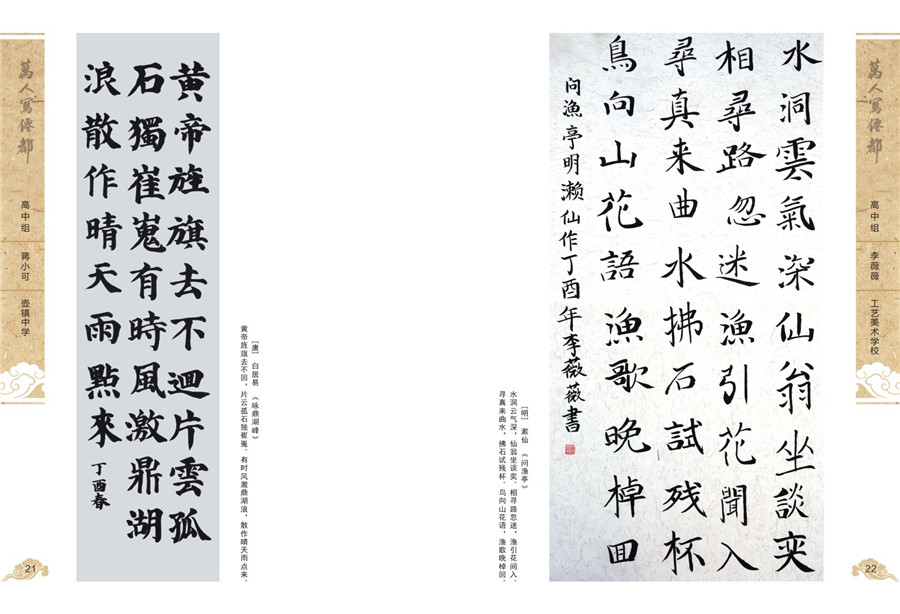 萬人寫僊都
高中组
蒋小可
壶镇中学
21
黄帝旌旗去不迴片雲孤
石獨崔嵬有時風激鼎湖
浪散作晴天雨點來
丁酉春
[唐] 白居易 《咏鼎湖峰》
黄帝旌旗去不回，片云孤石独崔嵬。有时风激鼎湖浪，散作晴天雨点来。
水洞雲氣深仙翁坐談奕
相尋路忽迷漁引花聞入
尋真来曲水拂石試残杯
鳥向山花語漁歌晚棹回
问漁亭明濑仙作丁酉年李薇薇書
[明] 漱仙 《问渔亭》
水洞云气深，仙翁坐谈奕，相寻路忽迷，渔引花间入，
寻真来曲水，拂石试残杯，鸟向山花语，渔歌晚棹回。
萬人寫僊都
高中组
李薇薇
工艺美术学校
22